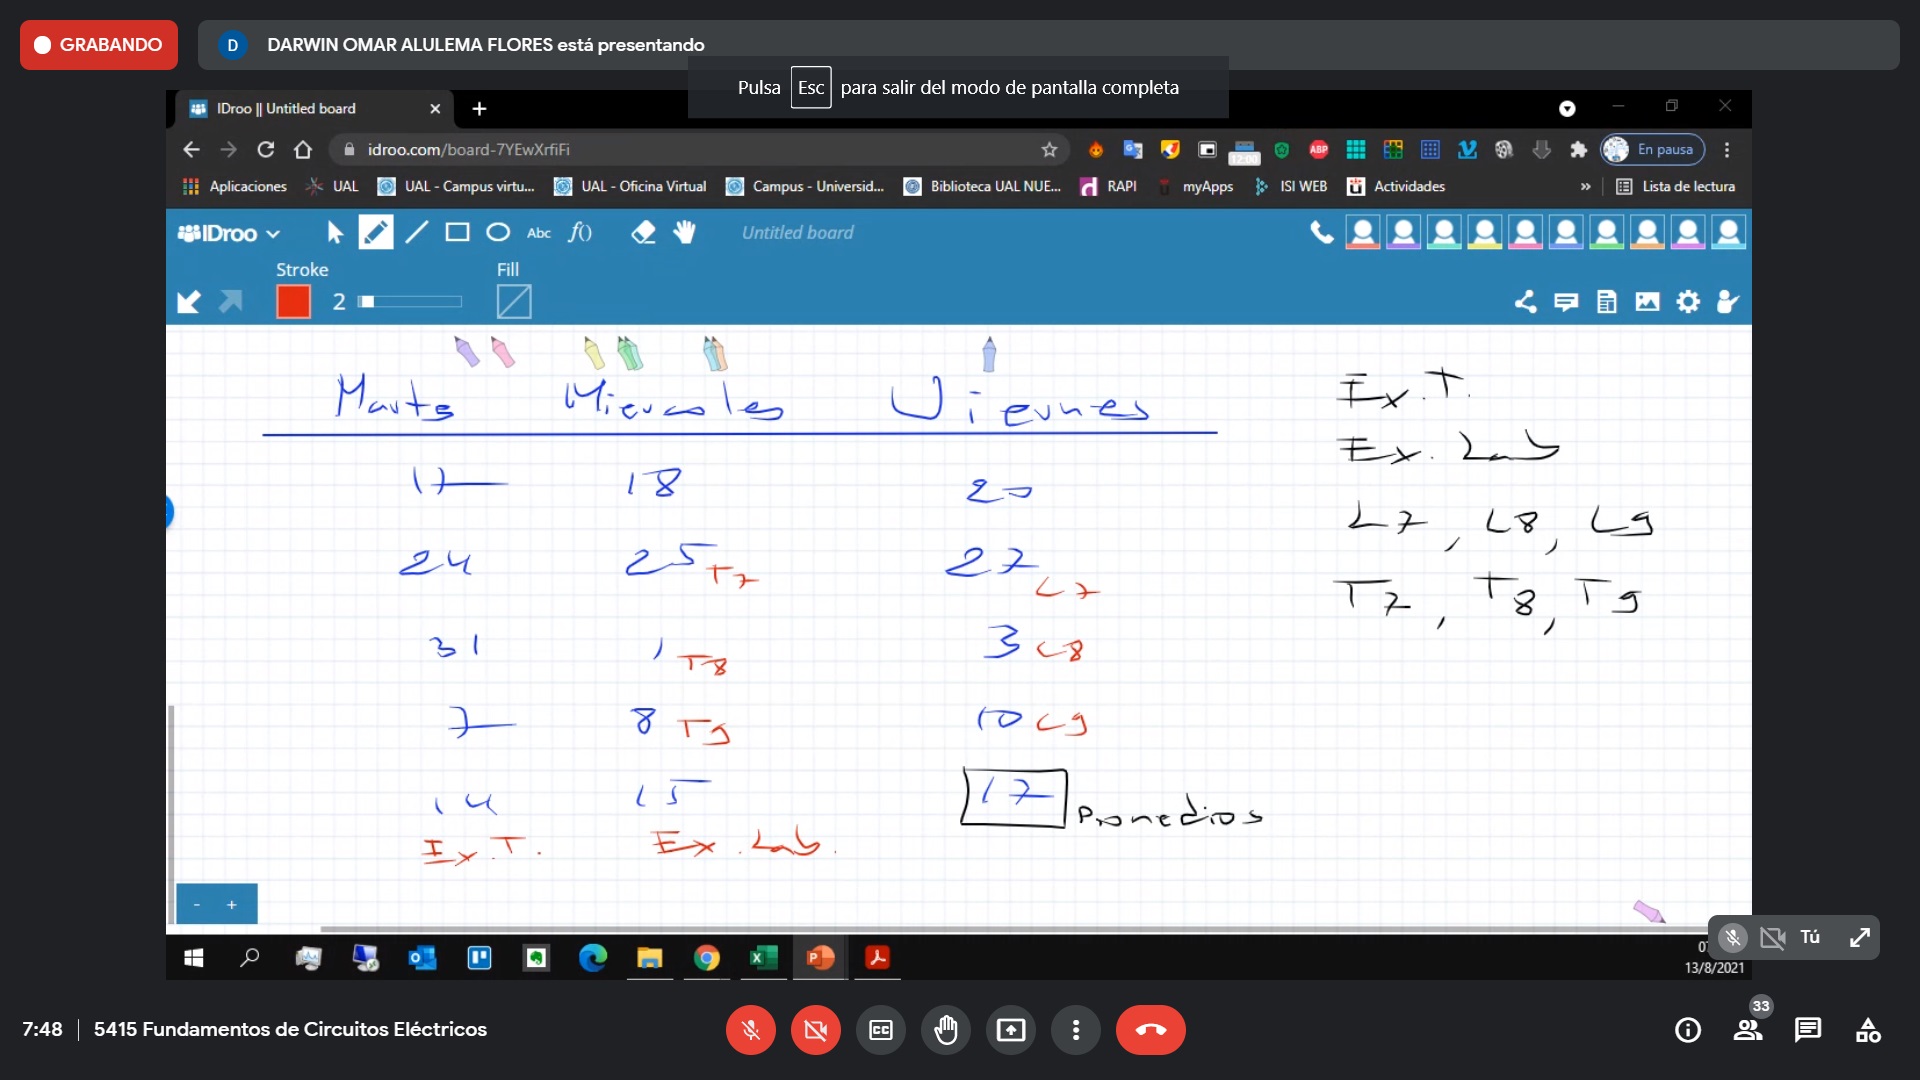 GRABANDO
D DARWIN OMAR ALULEMA FLORES está presentando
Pulsa Esc para salir del modo de pantalla completa
IDroo || Untitled board
idroo.com/board-7YEwXrfiFi
12:00
ABP
En pausa
Aplicaciones UAL UAL - Campus virtu... UAL - Oficina Virtual Campus - Universid... Biblioteca UAL NUE... RAPI myApps ISI WEB Actividades » Lista de lectura
IDroo Abc f() Untitled board
Stroke Fill
2
Martes Miercoles Viernes
17 18 20
24 25 T7 27 L7
31 1 T8 3 L8
7 8 T9 10 L9
14 15 17 Promedios
Ex.T. Ex. Lab.
Ex.T.
Ex. Lab
L7, L8, L9
T7, T8, T9
- +
Tú
13/8/2021
7:48 | 5415 Fundamentos de Circuitos Eléctricos
33